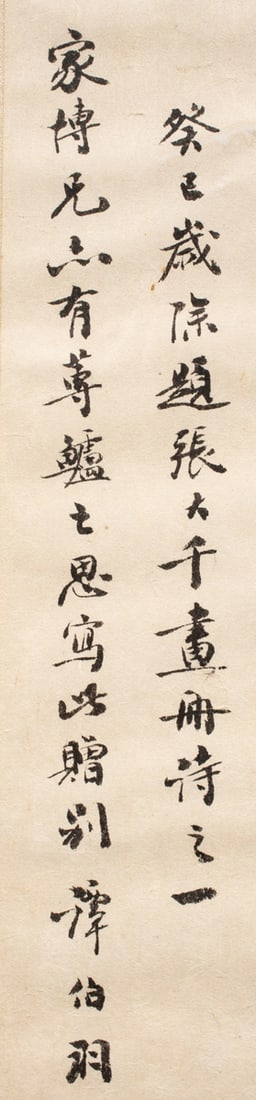 癸巳歲除題張大千畫冊詩之一
家博兄亦有蓴鱸之思寫此贈別 譚伯羽